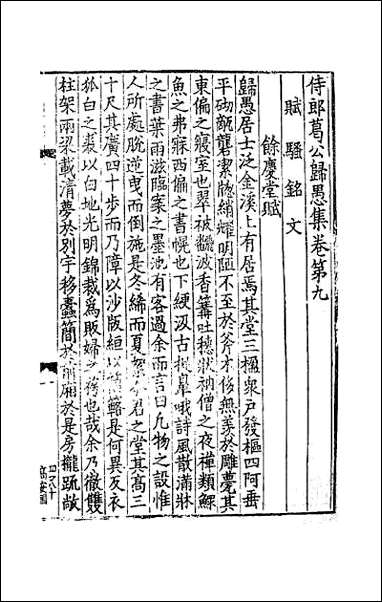 侍郎葛公歸愚集卷第九
賦 騷 銘 文
餘慶堂賦
歸愚居士泛金溪上有居焉其堂三楹衆戶發樞四阿垂
平砌甃甓潔牕綃耀明陋不至於斧才侈無羨於雕甍其
東偏之寢室也翠被翻波香篝吐穗狀衲僧之夜禪類鰥
魚之弗寐西偏之書幌也下綆汲古據皐哦詩風散滿牀
之書葉雨滋臨案之墨池有客過余而言曰凡物之設惟
人所處脫逆曳而倒施是冬絺而夏裘今君之堂其高三
十尺其廣四十步而乃障以沙版絙以籧簵是何異反衣
狐白之裘以白地光明錦裁爲敗婦之袴也哉余乃徹雙
柱架兩梁載清夢於別宇移蠹簡於前廂於是房櫳疏敞